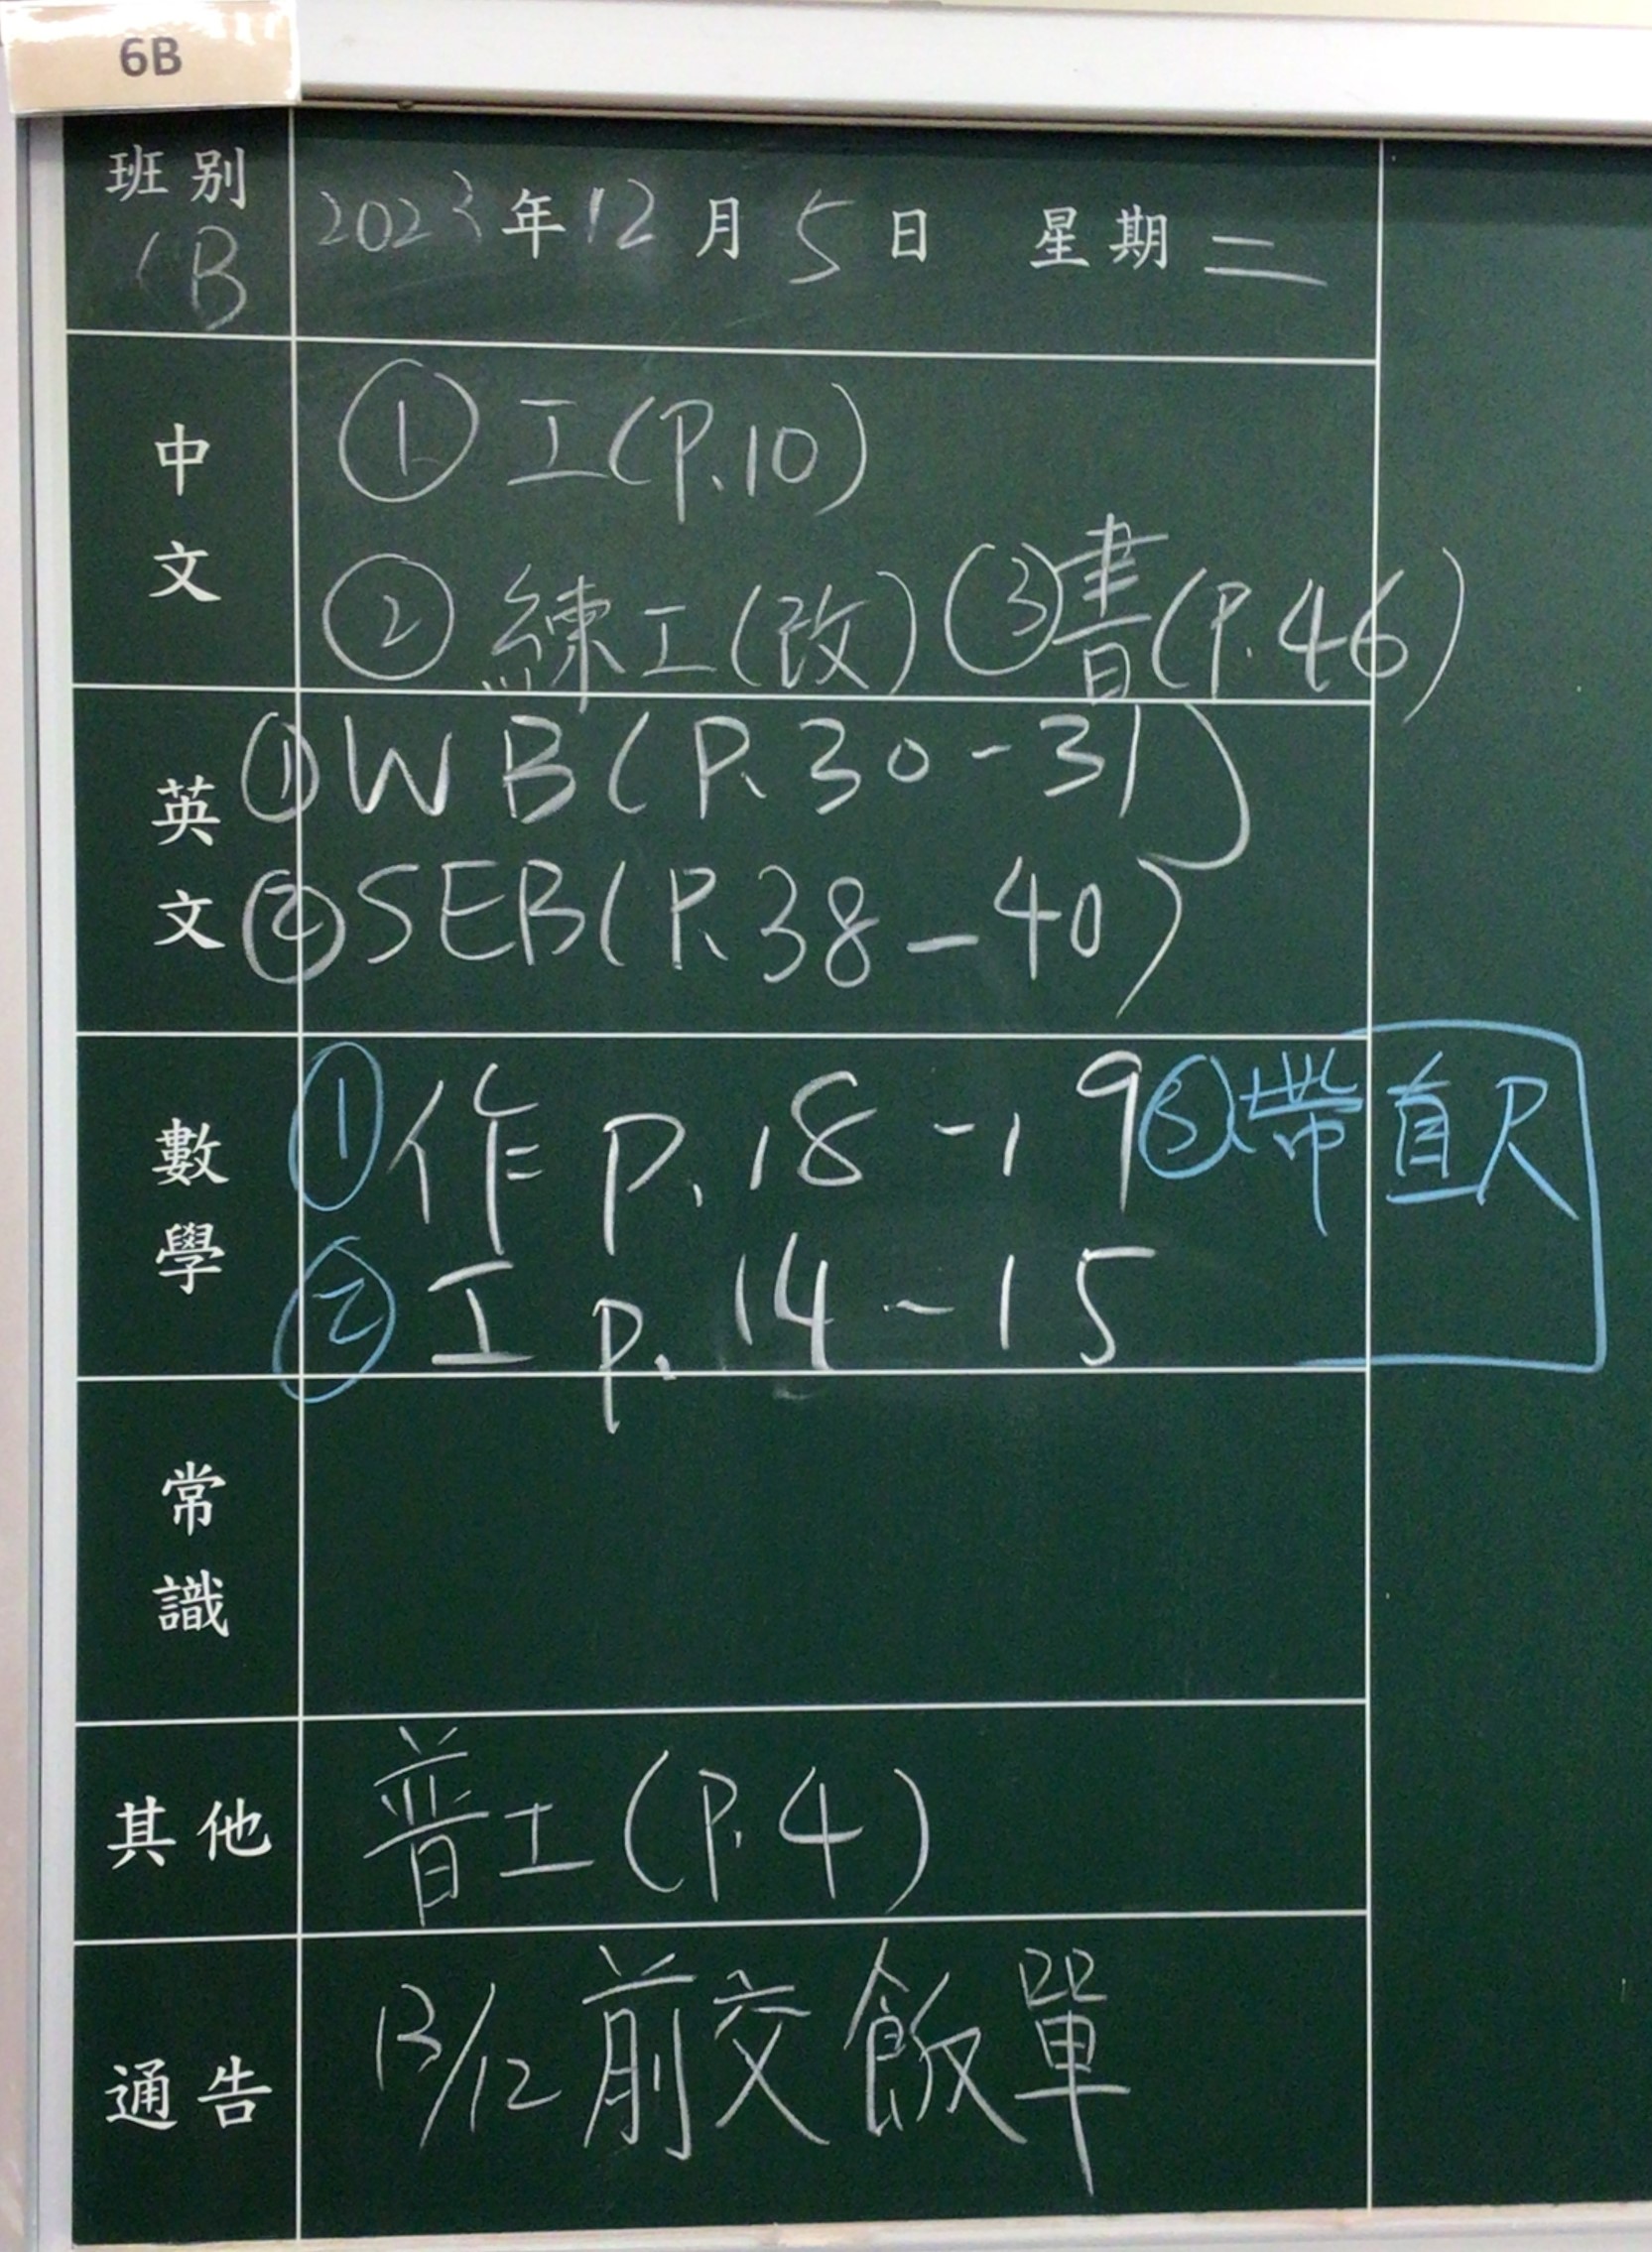 6B
班別 6B
2023年12月5日 星期二
中文
①工(P.10)
②練工(改) ③書(P.46)
英文
①WB(P.30-31)
②SEB(P.38-40)
數學
①作 P.18-19 ③帶直尺
②工 P.14-15
常識
其他
普工(P.4)
通告
13/12前交飯單